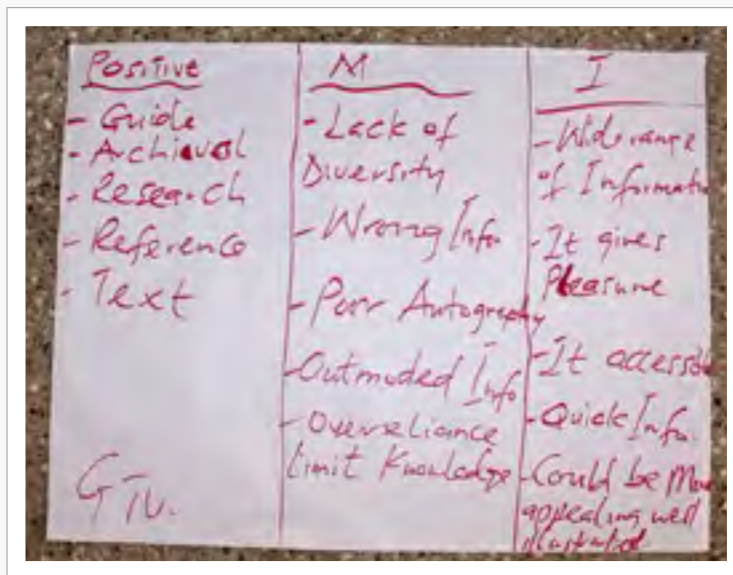 Positive
- Guide
- Archieval
- Research
- Reference
- Text
M
- Lack of
Diversity
- Wrong Info
- Poor Autography
- Outmoded Info
- Overreliance
limit Knowledge
I
- Wide range
of Informatio
- It gives
Pleasure
- It accessib
- Quick Info.
- Could be More
appealing well